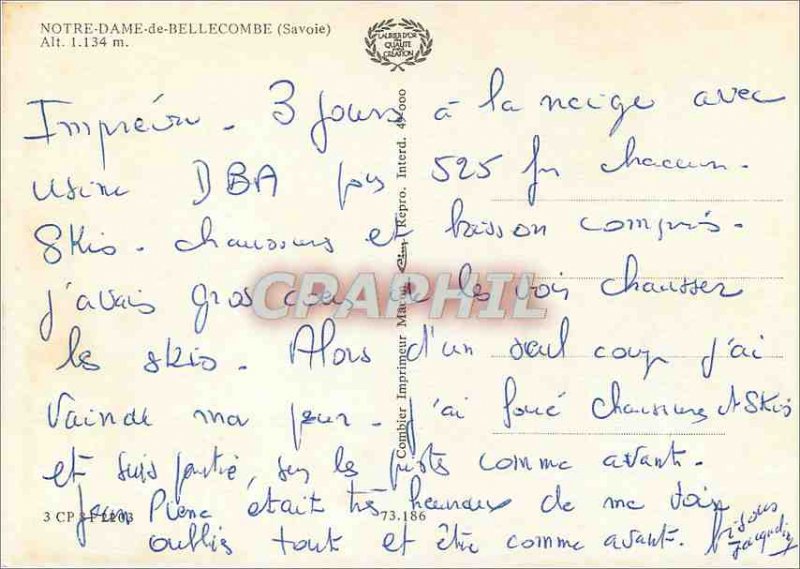 NOTRE-DAME-de-BELLECOMBE (Savoie)
Alt. 1.134 m.
LAURIER D'OR
DE
QUALITÉ
CRÉATION
Combier Imprimeur Macon Cim Repro. Interd. 49/000
Imprévu. 3 jours à la neige avec
usine DBA 525 fr chacun.
Skis - chaussures et boisson compris.
j'avais gros de les voir chausser
les skis. Alors d'un seul coup j'ai
ma peur. j'ai loué chaussures et Skis
et suis partie, sur les pistes comme avant.
Jean Pierre était très heureux de me voir
oublier tout et être comme avant. bisous
Jacqueline
3 CP 81 2203
73.186
CPAPHIL